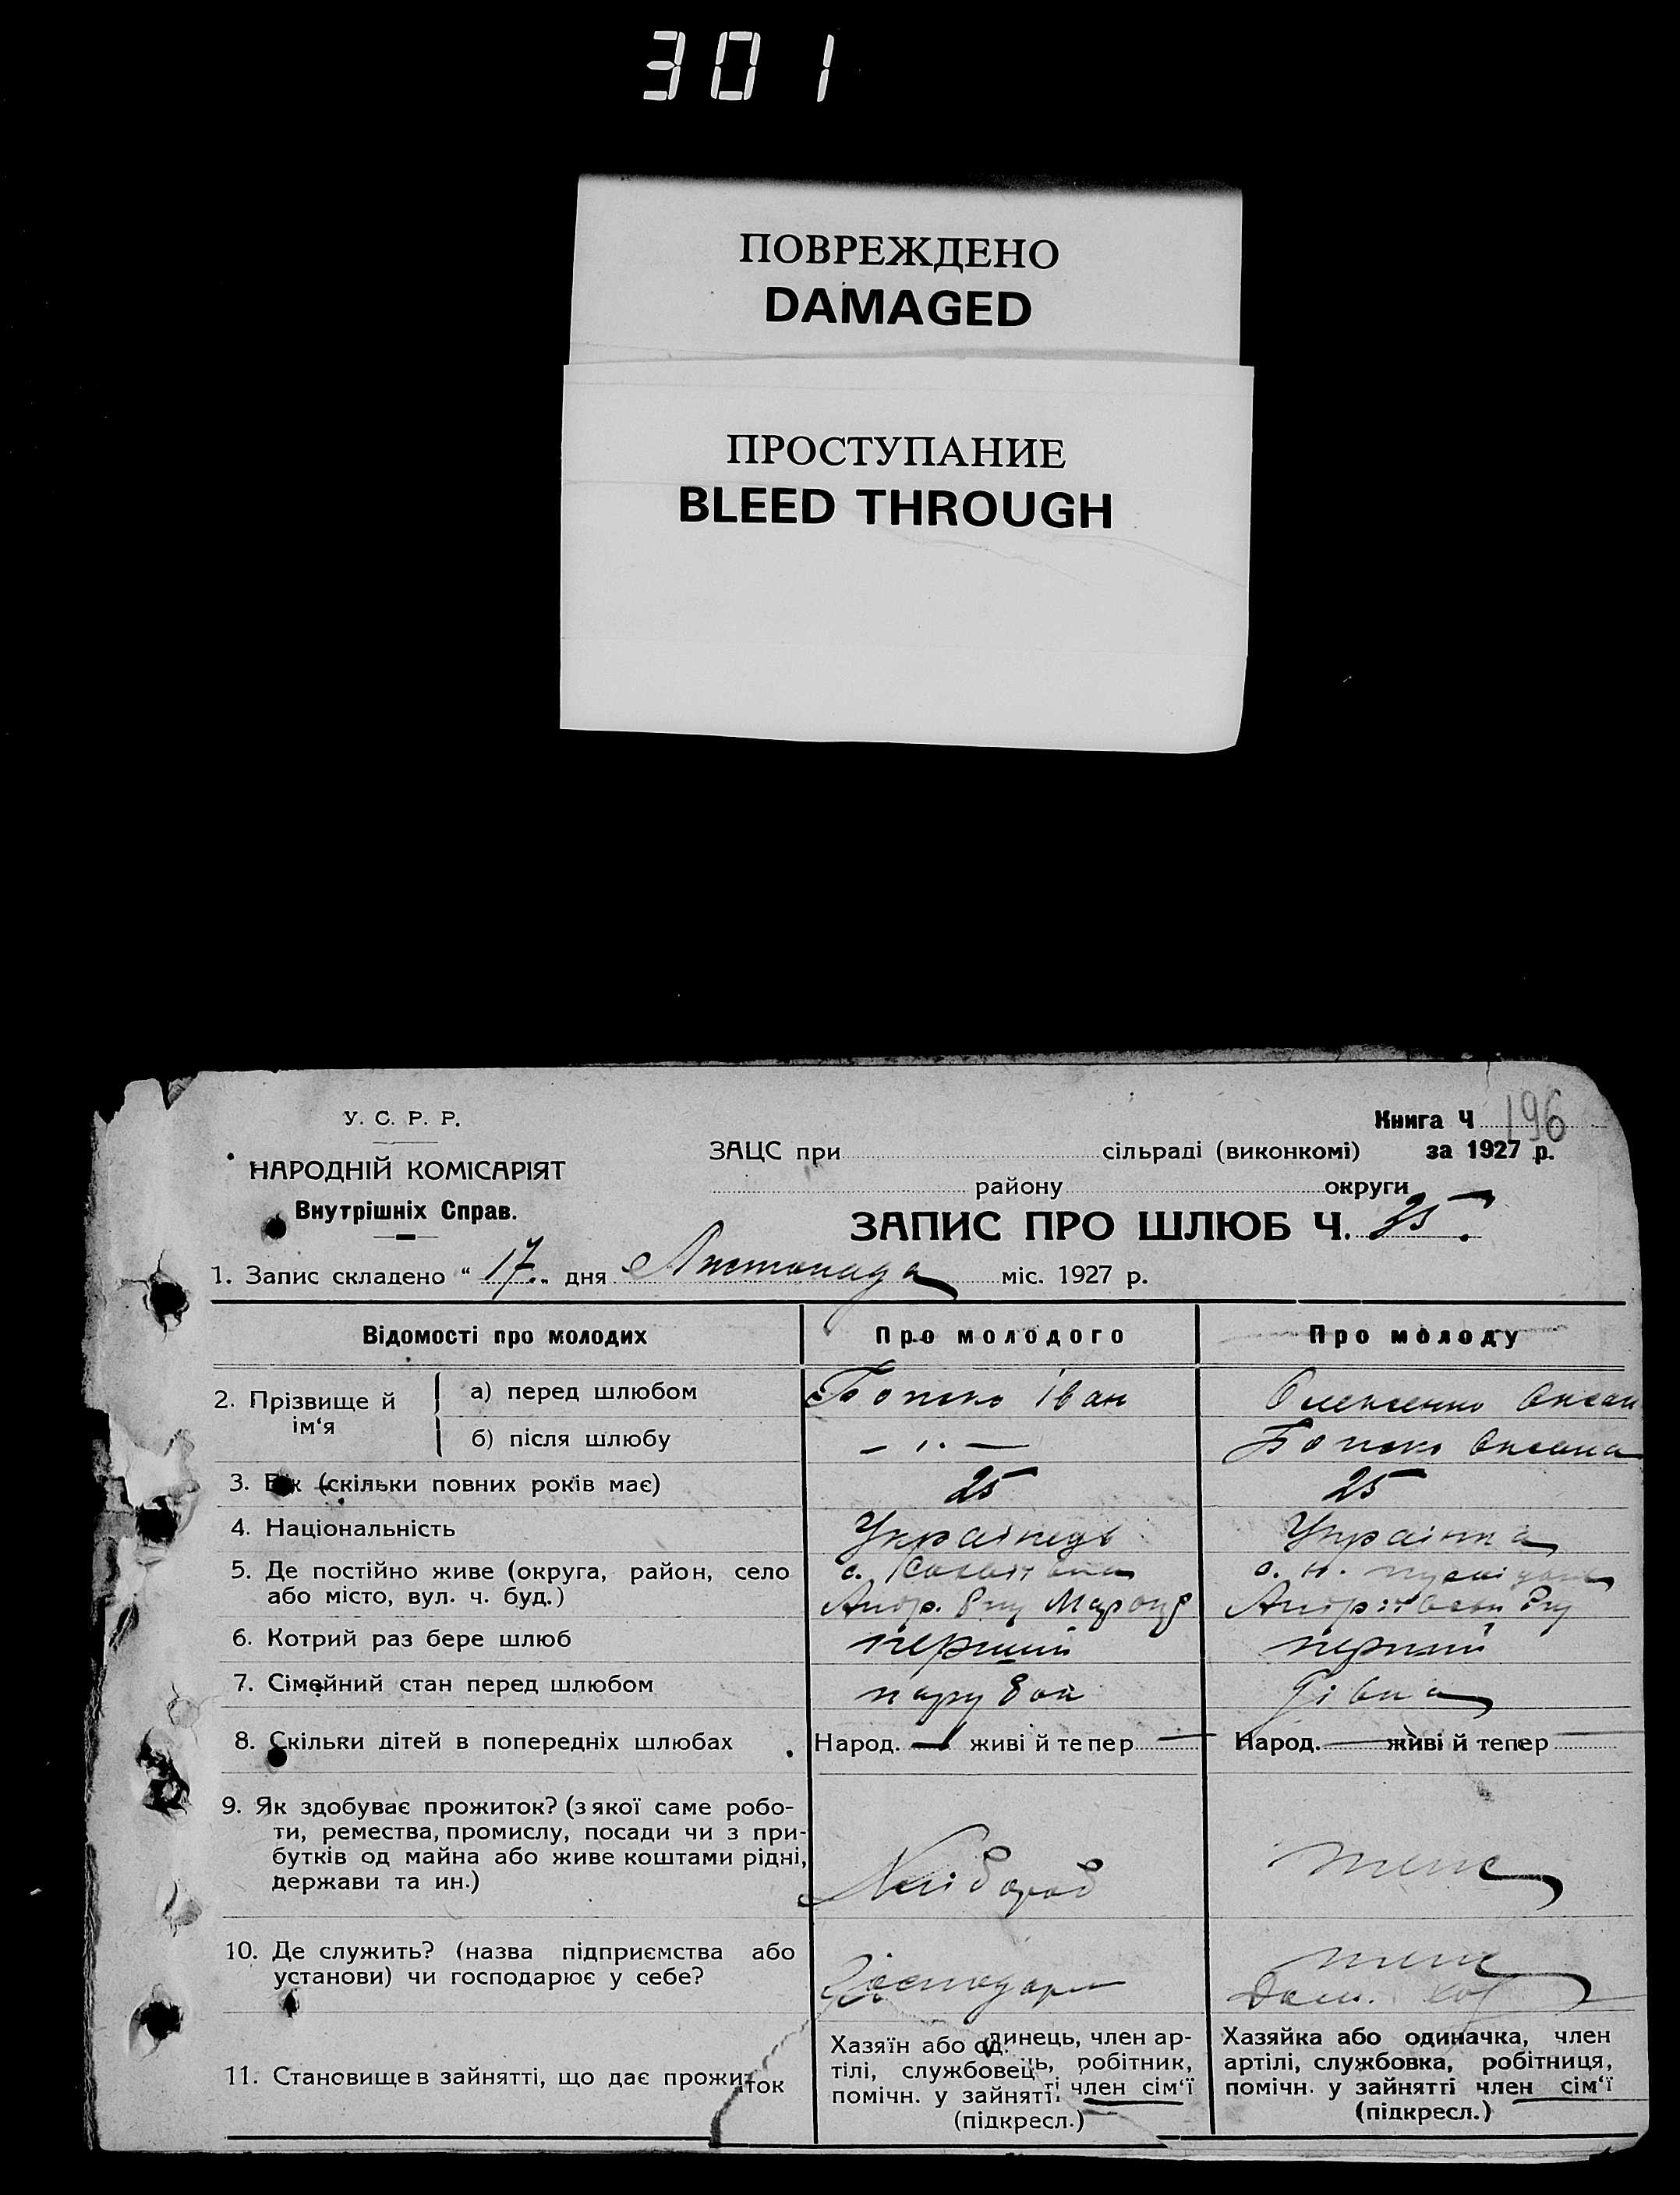 301
ПОВРЕЖДЕНО
DAMAGED
ПРОСТУПАНИЕ
BLEED THROUGH
У. С. Р. Р.
НАРОДНІЙ КОМІСАРІЯТ
Внутрішніх Справ.
Книга Ч 196
ЗАЦС при сільраді (виконкомі) за 1927 р.
району округи
ЗАПИС ПРО ШЛЮБ Ч. 25
1. Запис складено “ 17 „ дня Листопада міс. 1927 р.
Відомості про молодих Про молодого Про молоду
2. Прізвище й ім‘я
а) перед шлюбом Іван
б) після шлюбу — ı. — Оксана
3. Вік (скільки повних років має) 25 25
4. Національність Українець Українка
5. Де постійно живе (округа, район, село
або місто, вул. ч. буд.)
6. Котрий раз бере шлюб перший перший
7. Сімейний стан перед шлюбом парубок дівка
8. Скільки дітей в попередніх шлюбах Народ. — живі й тепер — Народ. — живі й тепер —
9. Як здобуває прожиток? (з якої саме робо-
ти, ремества, промислу, посади чи з при-
бутків од майна або живе коштами рідні,
держави та ин.)
Хлібороб теж
10. Де служить? (назва підприємства або
установи) чи господарює у себе?
теж
11. Становище в зайнятті, що дає прожиток
Хазяїн або одинець, член ар-
тілі, службовець, робітник,
помічн. у зайнятті член сім‘ї
(підкресл.)
Хазяйка або одиначка, член
артілі, службовка, робітниця,
помічн. у зайнятті член сім‘ї
(підкресл.)